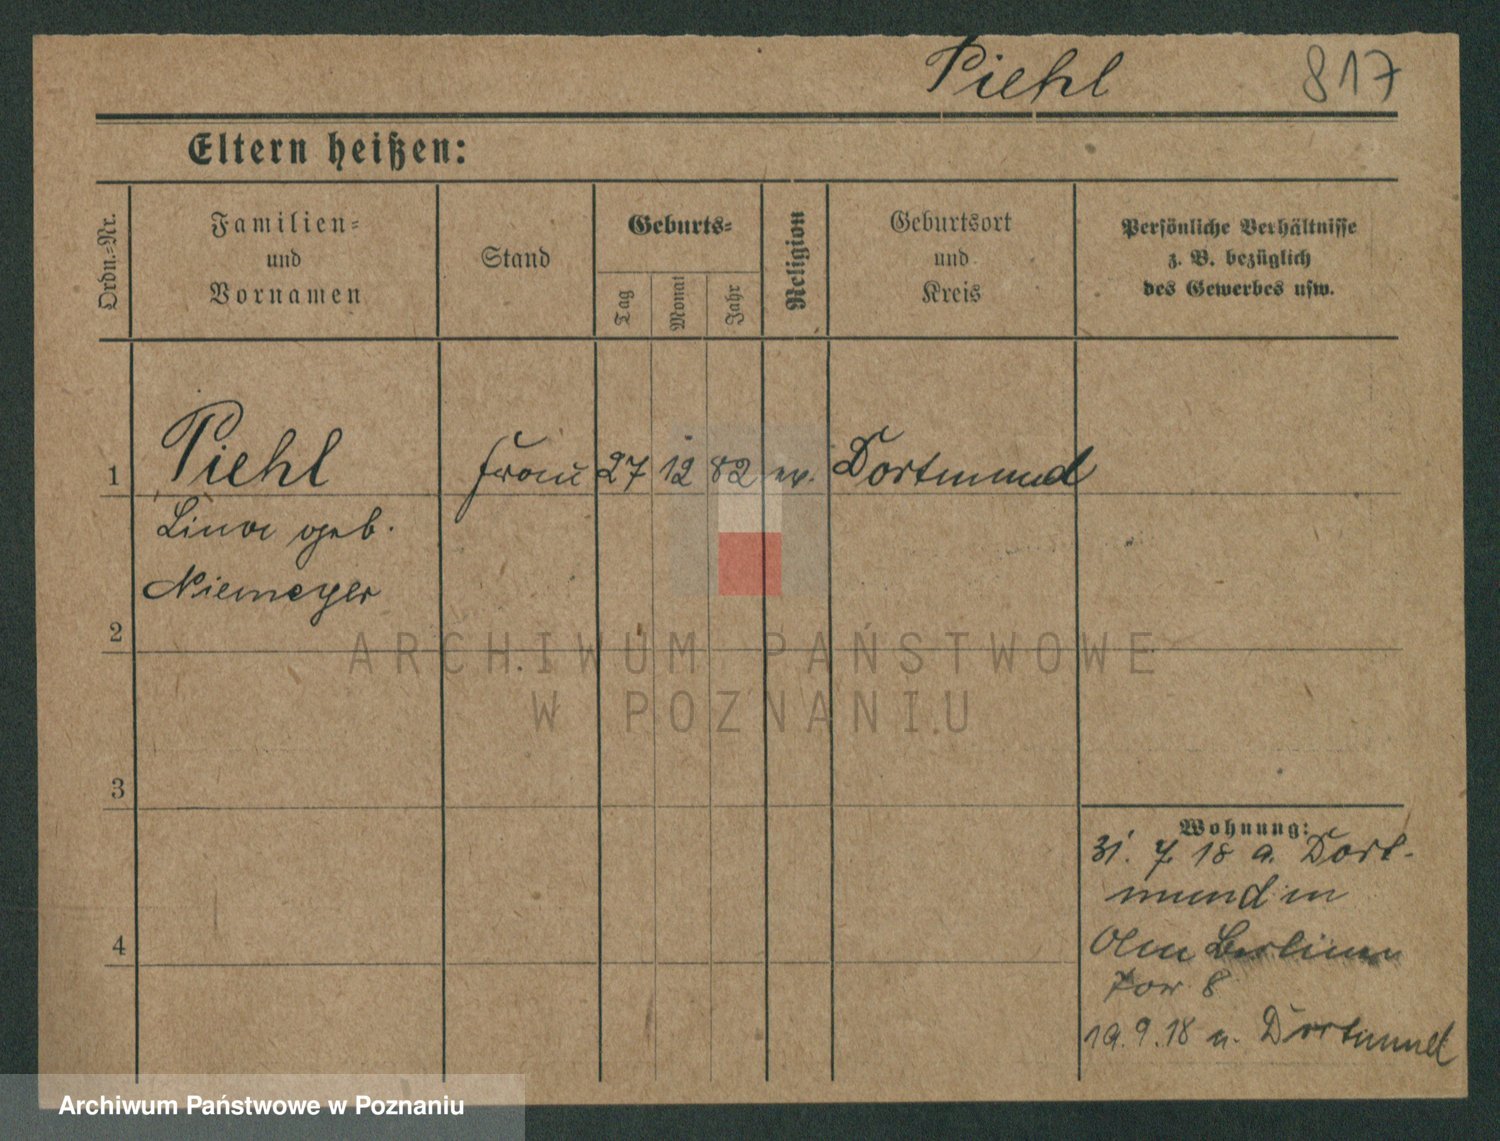 Piehl 817
Eltern heißen:
Ordn.-Nr.
Familien-
und
Vornamen
Stand
Geburts-
Tag
Monat
Jahr
Religion
Geburtsort
und
Kreis
Persönliche Verhältnisse
z. B. bezüglich
des Gewerbes usw.
1 Piehl Frau 27 12 82 ev. Dortmund
Lina geb.
Niemeyer
2
3
4
Wohnung:
31. 7. 18 a. Dort-
mund in
Am Berliner
Tor 8
19.9.18 n. Dortmund
ARCHIWUM PAŃSTWOWE
W POZNANIU
Archiwum Państwowe w Poznaniu